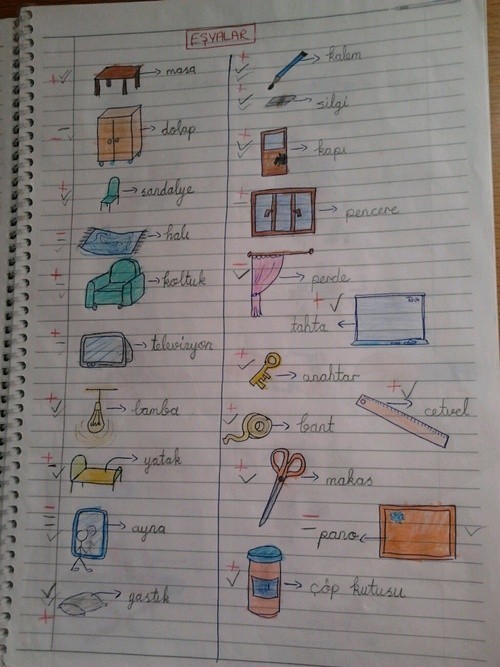 EŞYALAR
masa
dolap
sandalye
halı
koltuk
televizyon
lamba
yatak
ayna
yastık
kalem
silgi
kapı
pencere
perde
tahta
anahtar
cetvel
bant
makas
pano
çöp kutusu